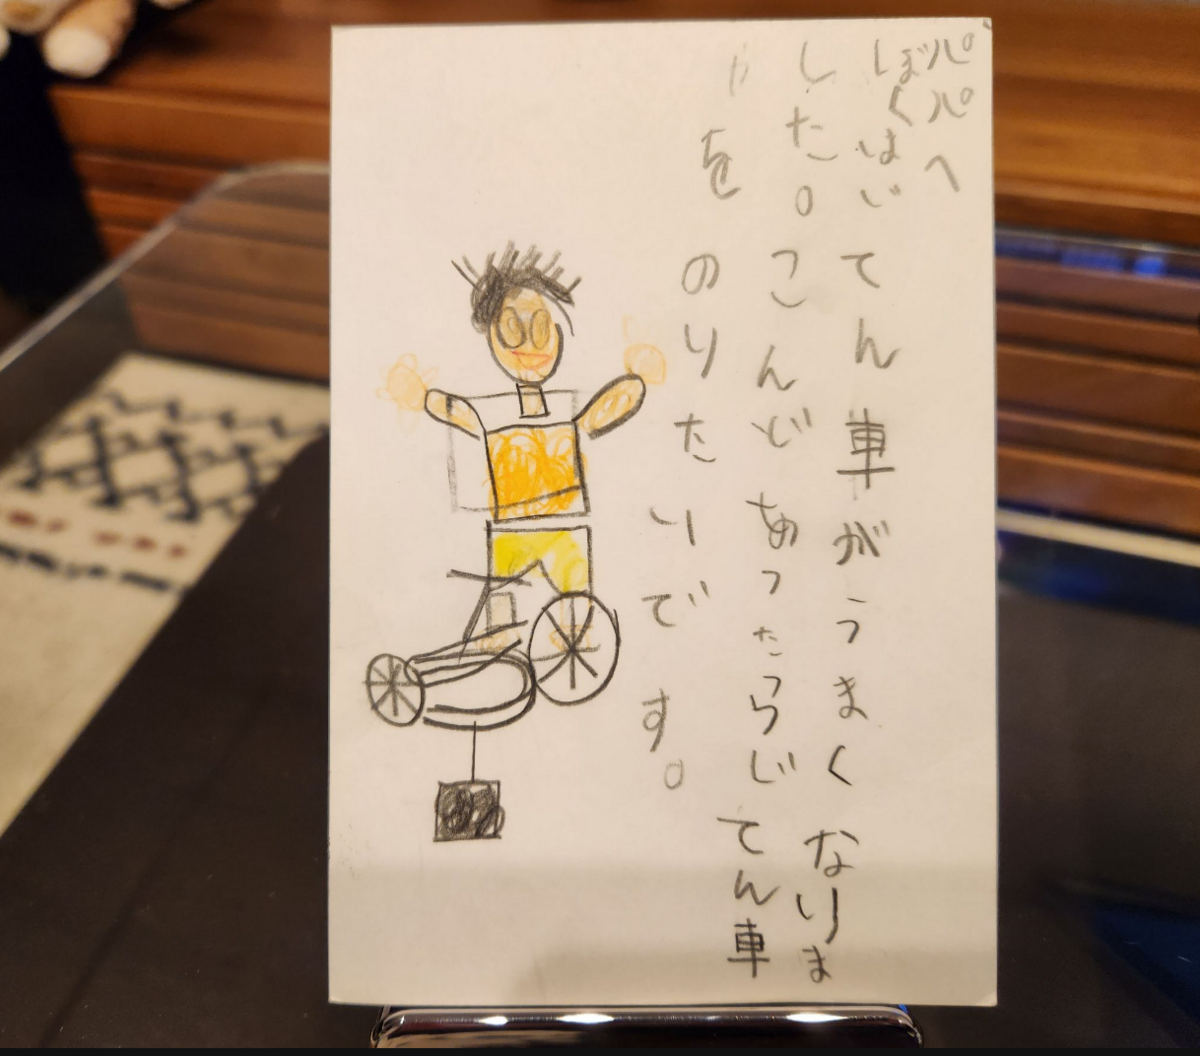 パパへ
ぼくはじてん車がうまくなりま
した。こんどあったらじてん車
をのりたいです。